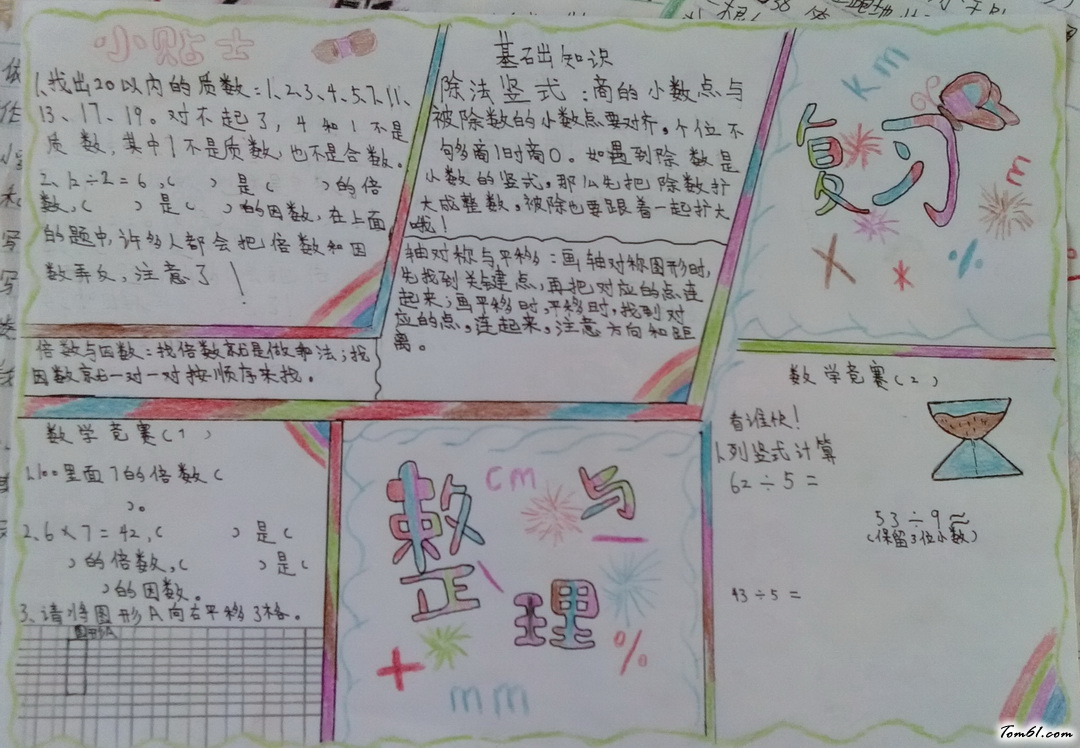 小贴士
1、找出20以内的质数:1、2、3、4、5、7、11、
13、17、19。对不起了,4和1不是
质数,其中1不是质数,也不是合数。
2、12÷2=6,( )是( )的倍
数,( )是( )的因数,在上面
的题中,许多人都会把倍数和因
数弄反,注意了!
倍数与因数:找倍数就是做乘法;找
因数就一对一对按顺序来找。
基础知识
除法竖式:商的小数点与
被除数的小数点要对齐。个位不
够商1时商0。如遇到除数是
小数的竖式,那么先把除数扩
大成整数,被除也要跟着一起扩大
哦!
轴对称与平移:画轴对称图形时,
先找到关键点,再把对应的点连
起来;画平移时,平移时,找到对
应的点,连起来,注意方向和距
离。
km
复习
m
×
*
÷
数学竞赛(1)
1、100里面7的倍数(
)。
2、6×7=42,( )是(
)的倍数,( )是(
)的因数。
3、请将图形A向右平移3格。
图形A
cm
整与
正理
+
%
mm
数学竞赛(2)
看谁快!
1、列竖式计算
62÷5=
53÷9≈
(保留3位小数)
43÷5=
Tom61.com